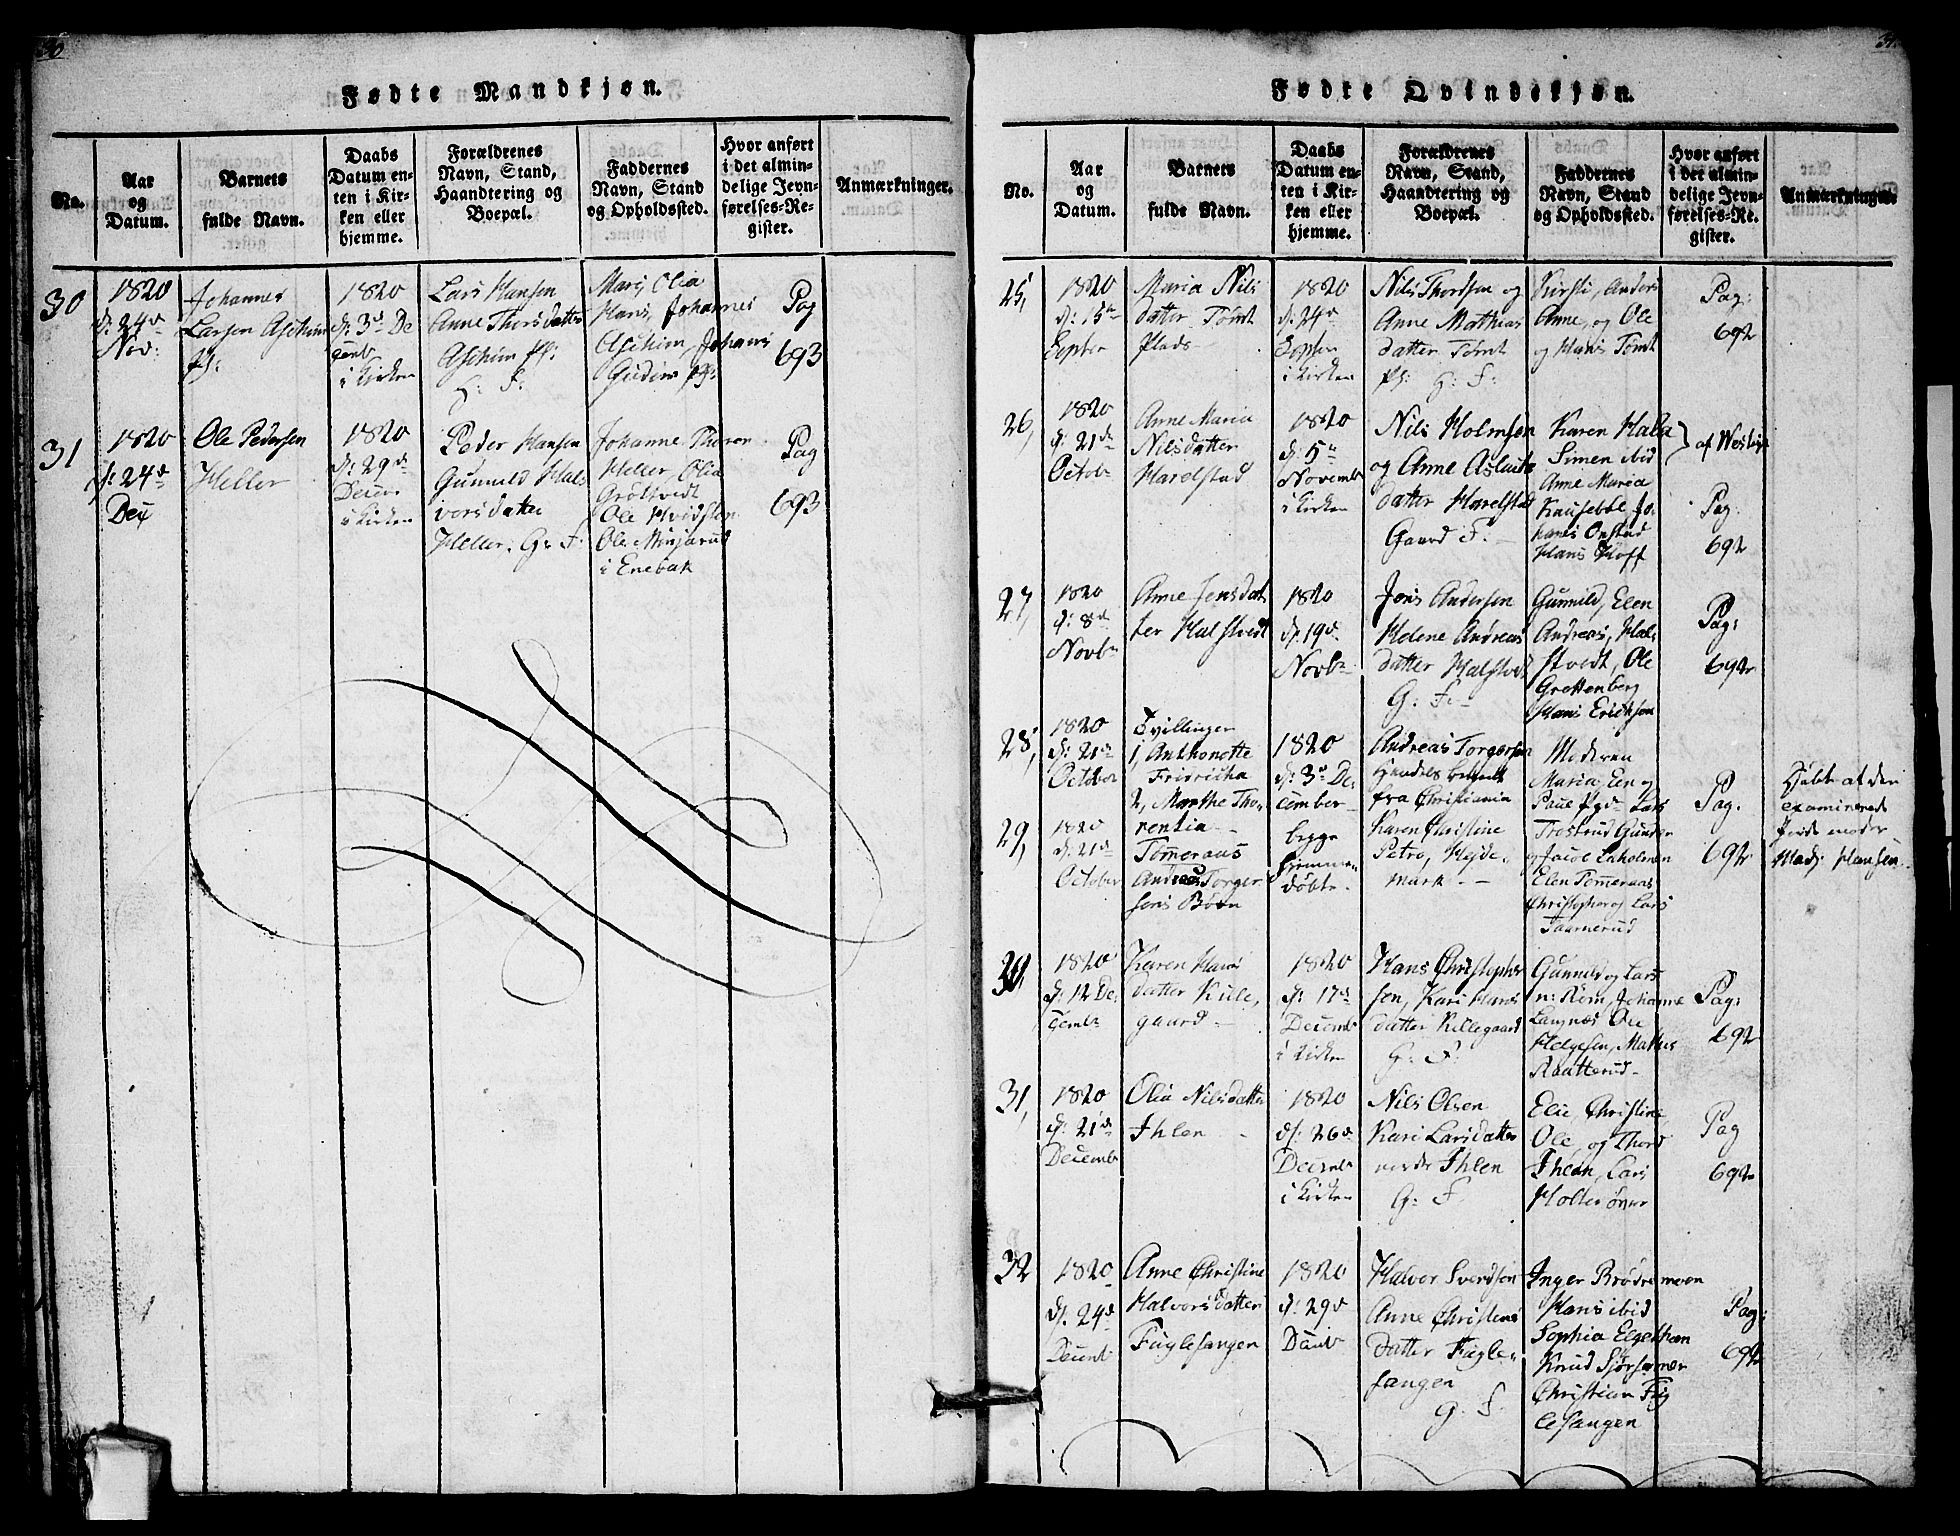 Fødte Mandkjøn.
No.
Aar
og
Datum.
Barnets
fulde Navn.
Daabs
Datum en-
ten i Kir-
ken eller
hjemme.
Forældrenes
Navn, Stand,
Haandtering og
Boepæl.
Faddernes
Navn, Stand
og Opholdssted.
Hvor anført
i det almin-
delige Jevn-
førelses-Re-
gister.
Anmærkninger.
30
1820
d: 24de
Nov:
Johannes
Larsen Aschim
pl:
1820
d: 3de De
cemb
i Kirken
Lars Hansen
Anne Thorsdatter
Aschim pl:
G: F:
Maris Olia
Hans, Johannes
Aschim, Johanis
Gudim pl:
Pag
693
31
1820
d: 24de
Dec
Ole Pedersen
Heller
1820
d: 29de
Decbr
i Kirken
Peder Hansen
Gunnild Hal-
vorsdatter
Heller. G: F:
Johanne Thoren
Heller, Olia
Grøstvedt
Ole Hvidsten
Ole Minjarud
i Enebak
Pag
693
Fødte Qvindekjøn.
No.
Aar
og
Datum.
Barnets
fulde Navn.
Daabs
Datum en-
ten i Kir-
ken eller
hjemme.
Forældrenes
Navn, Stand,
Haandtering og
Boepæl.
Faddernes
Navn, Stand
og Opholdssted.
Hvor anført
i det almin-
delige Jevn-
førelses-Re-
gister.
Anmærkninger.
25,
1820
d: 15de
Septer
Maria Nils
datter Tomt
Plads
1820
d: 24de
Septer
i Kirken
Nils Thordsen og
Anne Mathias
datter Tomt
pl: G: F:
Kirsti, Anders
Anne, og Ole
og Hans Tomt
Pag:
692
26,
1820
d: 21de
Octobr
Anne Maria
Nilsdatter
Harelstad
1820
d: 5te
Novembr
i Kirken
Nils Holmsen
og Anne Aslaks
datter Harelstad
Gaard F.
Karen Hala
Simen ibid
af Westby
Anne Maria
Knusebbe, Jo-
hanis Onstad
Hans Hoff
Pag:
692
27,
1820
d: 8de
Novbr
Anne Jensdat
ter Halstvedt
1820
d: 19de
Novbr
Jens Andersen
Helene Andreas
datter Halstvedt
G: F.
Gunnild, Elen
Andreas, Hal-
stvedt, Ole
Grettenberg
Hans Erichsen
Pag:
692
28,
1820
d: 21de
October
Tvillinger
1, Anthonette
Fridricha
2, Marthe Tho-
rentia
Tømeraas
Andreas Torger
sens Børn
1820
d: 3de De-
cember
begge
hjemme
døbte
Andreas Torgersen
fra Christiania
Karen Christine
Petra, Hejde-
mark
Moderen
Maria, Een og
Lars
Trostrud Gunder
og Jacob Laholmen
Elen Tømeraas
Christopher og Lars
Taarnerud
Pag.
692
Døbt af den
examinerede
Jordemoder
Mads Hansen
29,
1820
d. 21de
October
30,
1820
d: 12 De-
cembr
Karen Hans
datter Kille,
gaard
1820
d: 17de
Decemb
i Kirken
Hans Christopher
sen, Kari Hans
datter Killegaard
G: F:
Gunnild og Lars
n: Røm, Johanne
Langnæs Ole
Helgesen, Mathis
Raatterud
Pag:
692
31,
1820
d: 21de
Decemb
Olia Nilsdatter
Ihlen
1820
d: 26de
Decemb
i Kirken
Nils Olsen
Kari Larsdatter
nordr Ihlen
G: F
Elie Christine,
Ole, og Thord
Ihlen, Lars
Holter øvre
Pag
692
32
1820
d. 24de
Decemb
Anne Christine
Halvorsdatter
Fuglesangen
1820
d: 29de
Decemb
Halvor Svendsen
Anne Christens
datter Fugle-
sangen
G. F.
Inger Brødremoen
Hans ibid
Sophia Eegethan
Knud
Christian Fug
lesangen
Pag:
692